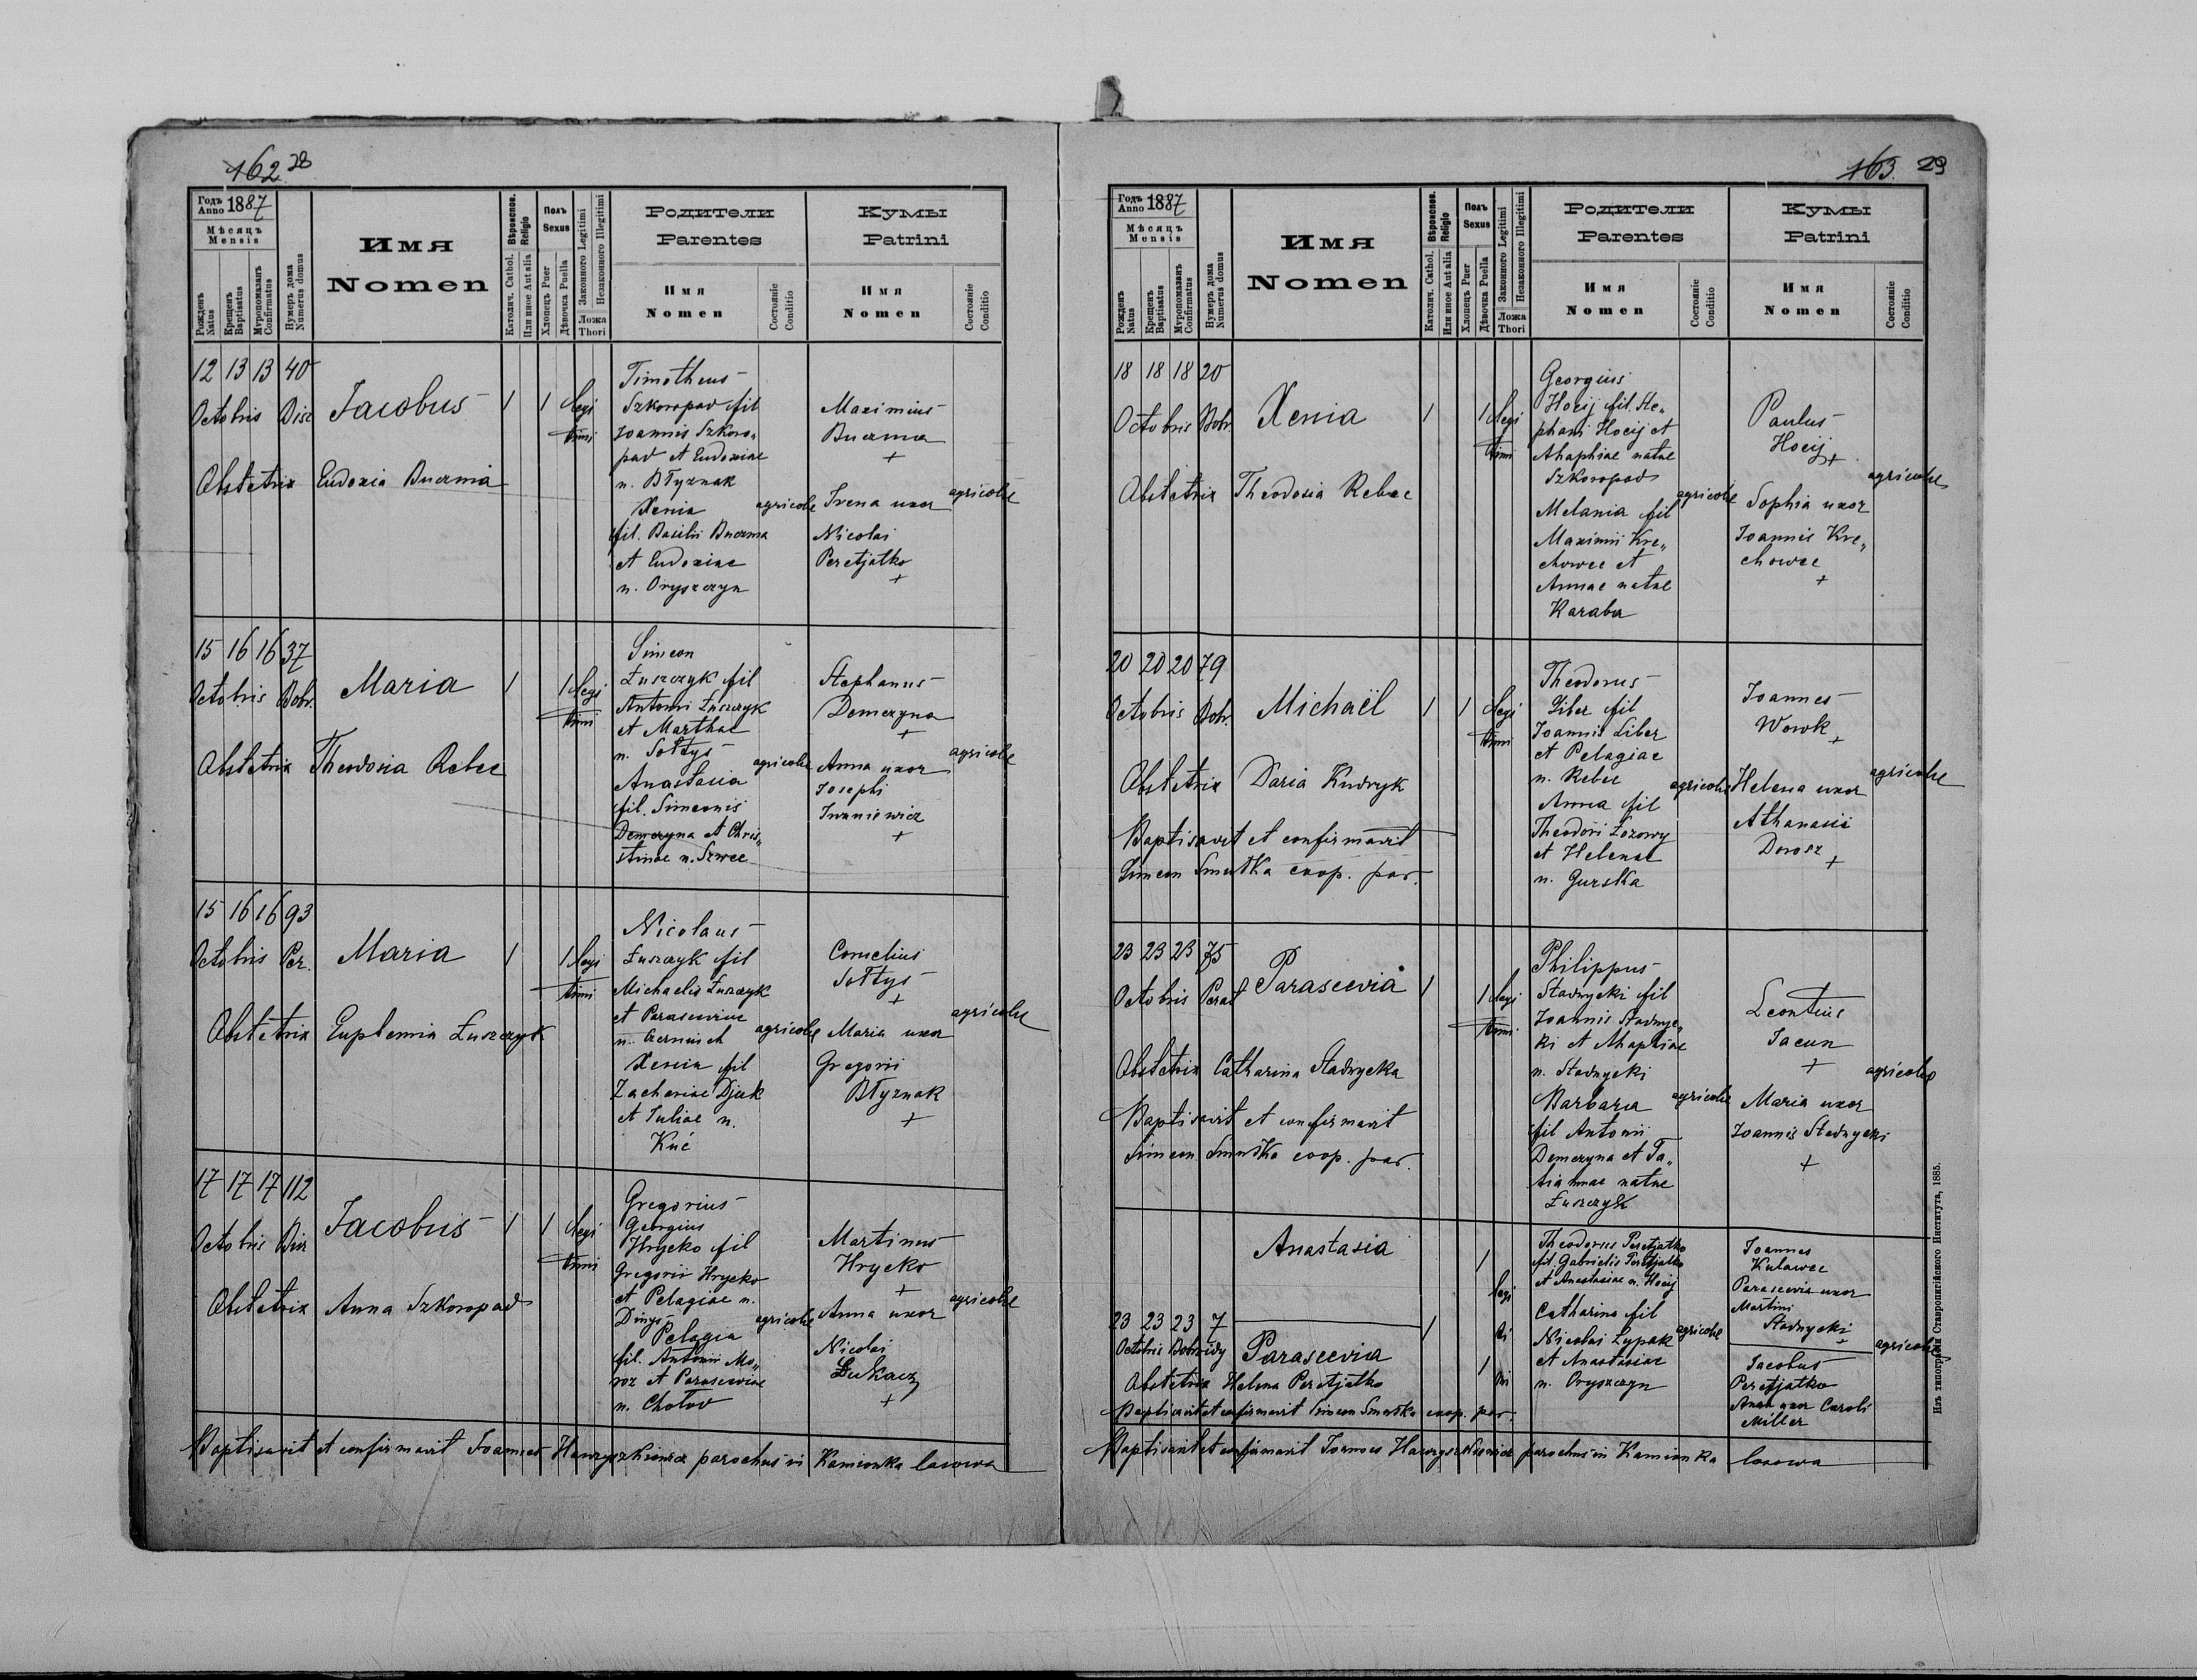 162. 28
Годъ Anno 1887
Мѣсяцъ Mensis
Рожденъ Natus
Крещенъ Baptisatus
Мѵропомазанъ Confirmatus
Нумеръ дома Numerus domus
Имя
Nomen
Вѣроиспов. Religio
Католич. Cathol.
Или иное Aut alia
Полъ Sexus
Хлопецъ Puer
Дѣвочка Puella
Законного Legitimi
Незаконного Illegitimi
Ложа Thori
Родители
Parentes
Имя
Nomen
Состояніе Conditio
Кумы
Patrini
Имя
Nomen
Состояніе Conditio
12 13 13 40
Octobris
Jacobus 1 1 legi
timi
Obstetrix Eudoxia Buczma
Timotheus
Szkoropad fil
Joannis Szkoro„
pad et Eudoxiae
n. Błyznak
Xenia agricolae
fil. Basilii Buczma
et Eudoxiae
n. Oryszczyn
Maximius
Buczma
+
Irena uxor agricolae
Nicolai
Peretjatko
+
15 16 16 37
Octobris Dobr.
Maria 1 1 legi
timi
Obstetrix Theodosia Rebec
Simeon
Łuszczyk fil
Antonii Łuszczyk
et Marthae
n. Sołtys
Anastasia agricolae
fil. Simeonis
Demczyna et Chris„
tinae n. Szwec
Stephanus
Demczyna
+
Anna uxor agricolae
Josephi
Iwaniewicz
+
15 16 16 93
Octobris Per.
Maria 1 1 legi
timi
Obstetrix Euphemia Łuszczyk
Nicolaus
Łuszczyk fil
Michaelis Łuszczyk
et Parasceviae
n. agricolae
Xenia fil
Zachariae Djak
et Juliae n.
Kuć
Cornelius
Sołtys
+
Maria uxor agricolae
Gregorii
Błyznak
+
17 17 17 112
Octobris
Jacobus 1 1 legi
timi
Obstetrix Anna Szkoropad
Gregorius
Georgius
Hrycko fil
Gregorii Hrycko
et Pelagiae n.
Dinys agricolae
Pelagia
fil. Antonii Mo„
roz et Parasceviae
n. Chołod
Martinus
Hrycko
+
Anna uxor agricolae
Nicolai
Łukacz
+
Baptisavit et confirmavit Joannes Hawryszkiewicz parochus in Kamionka lasowa
163. 29
Годъ Anno 1887
Мѣсяцъ Mensis
Рожденъ Natus
Крещенъ Baptisatus
Мѵропомазанъ Confirmatus
Нумеръ дома Numerus domus
Имя
Nomen
Вѣроиспов. Religio
Католич. Cathol.
Или иное Aut alia
Полъ Sexus
Хлопецъ Puer
Дѣвочка Puella
Законного Legitimi
Незаконного Illegitimi
Ложа Thori
Родители
Parentes
Имя
Nomen
Состояніе Conditio
Кумы
Patrini
Имя
Nomen
Состояніе Conditio
18 18 18 20
Octobris Dobr.
Xenia 1 1 legi
timi
Obstetrix Theodosia Rebec
Georgius
Hocij fil. Ste„
phani Hocij et
Ahaphiae natae
Szkoropad
Melania fil agricolae
Maximii Kre„
chowec et
Annae natae
Karaba
Paulus
Hocij
+
Sophia uxor agricolae
Joannis Kre„
chowec
+
20 20 20 79
Octobris Dobr.
Michaël 1 1 legi
timi
Obstetrix Daria Kudryk
Baptisavit et confirmavit
Simeon Smutka coop. par.
Theodorus
Liber fil
Joannis Liber
et Pelagiae
n. Rebec
Anna fil agricolae
Theodori Łozowy
et Helenae
n. Gurska
Joannes
Wowk
+
Helena uxor agricolae
Athanasii
Dorosz
+
23 23 23 75
Octobris Perat
Parascevia 1 1 legi
timi
Obstetrix Catharina Stadnycka
Baptisavit et confirmavit
Simeon Smutka coop. par.
Philippus
Stadnycki fil
Joannis Stadnyc„
ki et Ahaphiae
n. Stadnycki
Barbara agricolae
fil Antonii
Demczyna et Ta„
tiannae natae
Łuszczyk
Leontius
Jacun
+
Maria uxor agricolae
Joannis Stadnycki
+
Anastasia 1
23 23 23 7
Octobris
Parascevia 1 1
Obstetrix Helena Peretjatko
Baptisavit et confirmavit Simeon Smutka coop. par.
Theodorus Peretjatko
fil. Gabrielis Peretjatko
et Anastasiae n. Hocij
Catharina fil
Nicolai Lypak agricolae
et Anastasiae
n. Oryszczyn
Joannes
Kulawec
Parascevia uxor
Martini
Stadnycki
+
Jacobus agricolae
Peretjatko
Anna uxor Caroli
Miller
Baptisavit et confirmavit Joannes Hawryszkiewicz parochus in Kamionka lasowa
Изъ типографіи Ставропигійского Института, 1885.